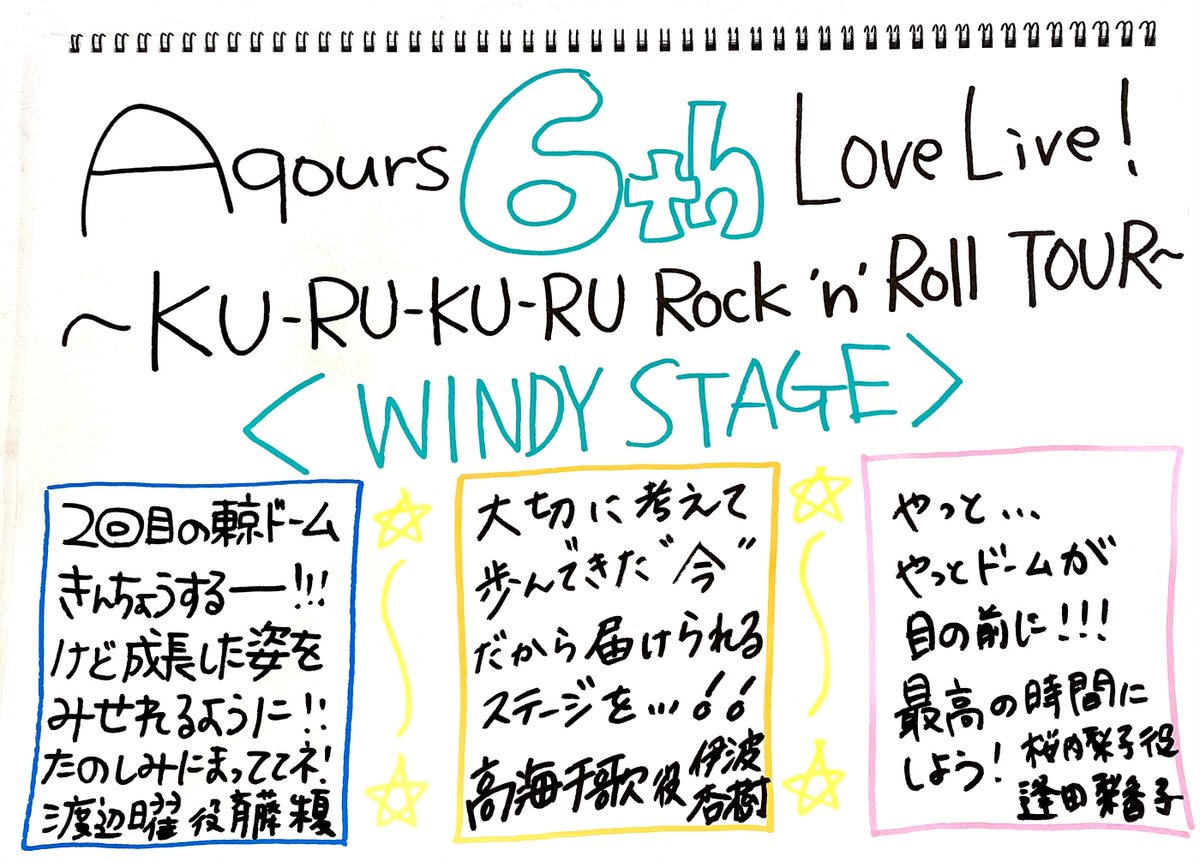 Aqours 6th LoveLive!
~KU-RU-KU-RU Rock 'n' Roll TOUR~
<WINDY STAGE>
2回目の東京ドーム
きんちょうするー!!!
けど成長した姿を
みせれるように!!
たのしみにまっててネ!
渡辺曜役 斉藤朱夏
大切に考えて
歩んできた"今"
だから届けられる
ステージを...!!
高海千歌役 伊波杏樹
やっと...
やっとドームが
目の前に!!!
最高の時間に
しよう!
桜内梨子役
逢田梨香子